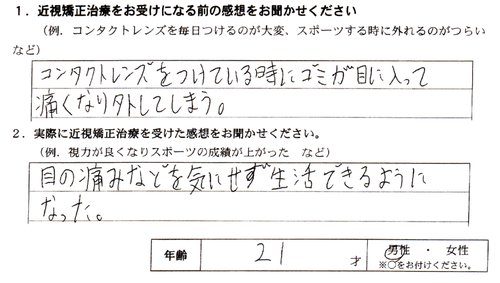 1．近視矯正治療をお受けになる前の感想をお聞かせください
（例．コンタクトレンズを毎日つけるのが大変、スポーツする時に外れるのがつらい
など）
コンタクトレンズをつけている時にゴミが目に入って
痛くなり外してしまう。
2．実際に近視矯正治療を受けた感想をお聞かせください。
（例．視力が良くなりスポーツの成績が上がった　など）
目の痛みなどを気にせず生活できるように
なった。
年齢　21　才　男性　・　女性
※○をお付けください。